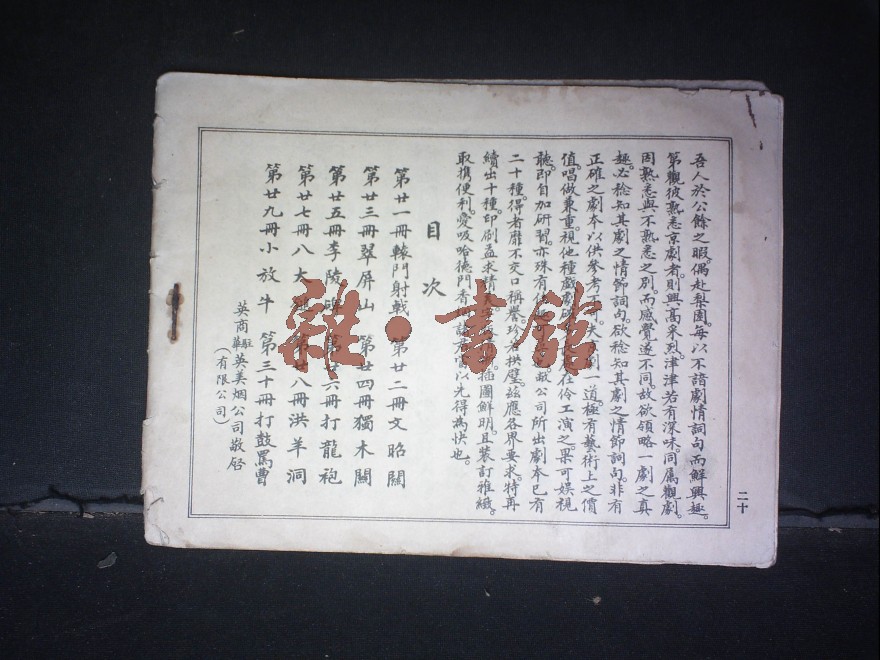 吾人於公餘之暇。偶赴梨園。每以不諳劇情詞句。而鮮興趣。
第觀彼熟悉京劇者。則興高采烈。津津若有深味。同屬觀劇。
因熟悉與不熟悉之別。而感覺遂不同。故欲領略一劇之真
趣。必稔知其劇之情節詞句。欲稔知其劇之情節詞句。非有
正確之劇本以供參考不 夫 劇一道。極有藝術上之價
值。唱做兼重。視他種戲劇 在伶工演之。果可娛視
聽。即自加研習。亦殊有 敝公司所出劇本已有
二十種。得者靡不交口稱譽。珍 拱璧。茲應各界要求。特再
續出十種。印刷益求精 插圖鮮明。且裝訂雅緻。
取攜便利。愛吸哈德門香 諸君 以先得為快也。
目次
第廿一冊轅門射戟 第廿二冊文昭關
第廿三冊翠屏山 第廿四冊獨木關
第廿五冊李陵碑 第 六冊打龍袍
第廿七冊八大 第廿八冊洪羊洞
第廿九冊小放牛 第三十冊打鼓罵曹
英商駐華英美烟公司敬啓
(有限公司)
二十
雜·書館